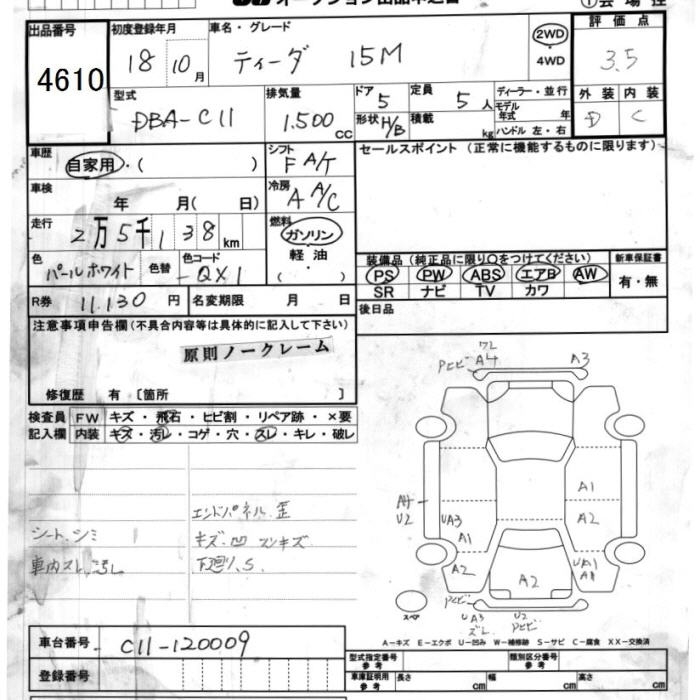 オークション出品申込書
①会場控
出品番号 初度登録年月 車名・グレード 評価点
4610 18 10月 ティーダ 15M 2WD・4WD 3.5
型式 排気量 ドア 定員 ディーラー・並行 外装 内装
DBA-C11 1.500cc 5 5人 モデル年式 年 D C
形状 H/B 積載 kg ハンドル 左・右
車歴 シフト セールスポイント (正常に機能するものに限ります)
自家用・( ) F A/T
車検 冷房
年 月( 日) A A/C
走行 燃料
2万5千138km ガソリン・軽油・( )
色 色替 色コード 装備品 (純正品に限り○をつけてください) 新車保証書
パールホワイト QX1 PS PW ABS エアB AW 有・無
SR ナビ TV カワ
R券 11.130円 名変期限 月 日 後日品
注意事項申告欄(不具合内容等は具体的に記入して下さい)
原則ノークレーム
修復歴 有 [箇所 ]
検査員 FW キズ・飛石・ヒビ割・リペア跡・×要
記入欄 内装 キズ・汚レ・コゲ・穴・スレ・キレ・破レ
エンドパネル歪
シート、シミ キズ、凹 スリキズ
車内スレ、汚レ 下廻り、S
ワレ
Pヒビ A4 A3
A4 A1
U2 UA3 A2
A1
A2 A2 UA1
A1
スペア Pヒビ UA3 U2
ズレ Pヒビ
A-キズ E-エクボ U-凹み W-補修跡 S-サビ C-腐食 XX-交換済
車台番号 C11-120009
登録番号
型式指定番号 参考 類別区分番号 参考
車庫証明用 参考 長さ cm 幅 cm 高さ cm